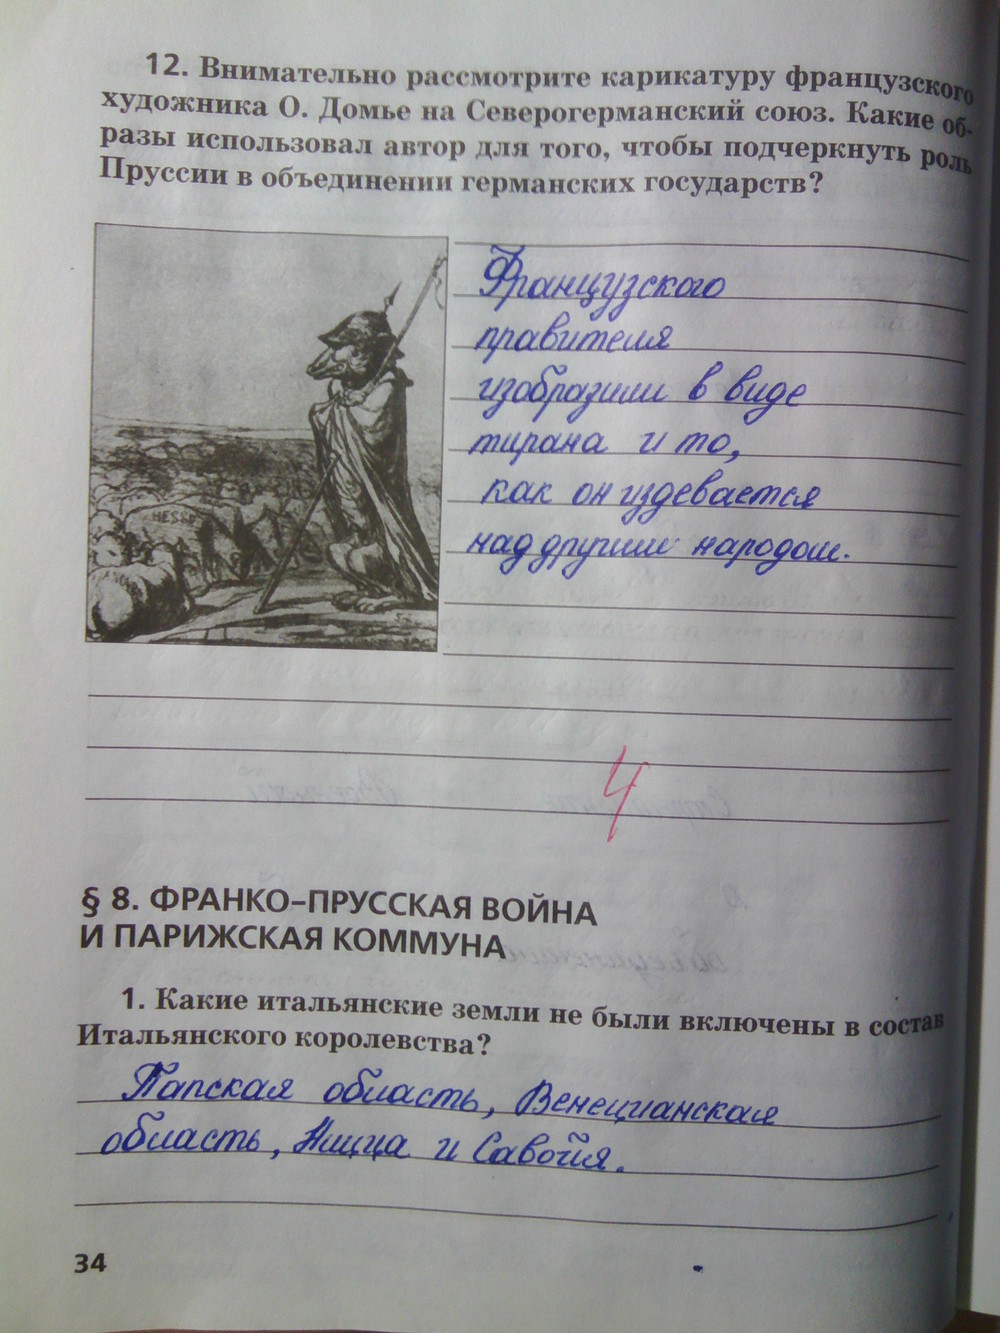 12. Внимательно рассмотрите карикатуру французского
художника О. Домье на Северогерманский союз. Какие об-
разы использовал автор для того, чтобы подчеркнуть роль
Пруссии в объединении германских государств?
Французского
правителя
изобразили в виде
тирана и то,
как он издевается
над другими народом.
HESSE
4
§ 8. ФРАНКО-ПРУССКАЯ ВОЙНА
И ПАРИЖСКАЯ КОММУНА
1. Какие итальянские земли не были включены в состав
Итальянского королевства?
Папская область, Венецианская
область, Ницца и Савойя.
34